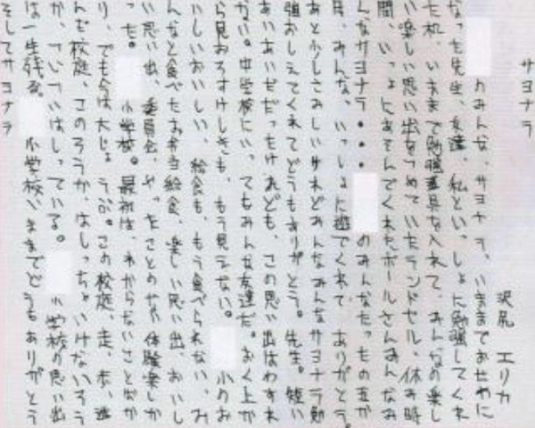 サヨナラ
沢尻 エリカ
のみんな、サヨナラ、いままでおせわに
なった先生、友達、私といっしょに勉強してくれ
た机、いままで勉強道具を入れて、みんなの楽し
い楽しい思い出をつめていたランドセル、休み時
間、いっしょにあそんでくれたボールさんみんなみ
んなサヨナラ・・・ のみんなだったもの五か
月、みんな、いっしょに遊でくれて、ありがとう。
あと少しさみしいけれどみんなみんなサヨナラ勉
強おしえてくれてどうもありがとう。先生。短い
あいあいだだったけれども、この思い出はわすれ
ない。中学校にいってもみんな友達だ。おく上か
ら見おろすけしきも、もう見えない。 小のお
いしいおいしい、給食も、もう食べられない、み
んなと食べたお弁当給食、楽しい思い出、おいし
い思い出、委員会、やったことのない体験楽しか
った。 小学校。最初は、わからないことばか
り、でも今は大じょうぶ。この校庭、走、歩、遊
んだ校庭、このろうか、はしっちゃいけないろう
か、ついついはしっている。 小学校の思い出
は一生残る。 小学校いままでどうもありがとう
そしてサヨナラ